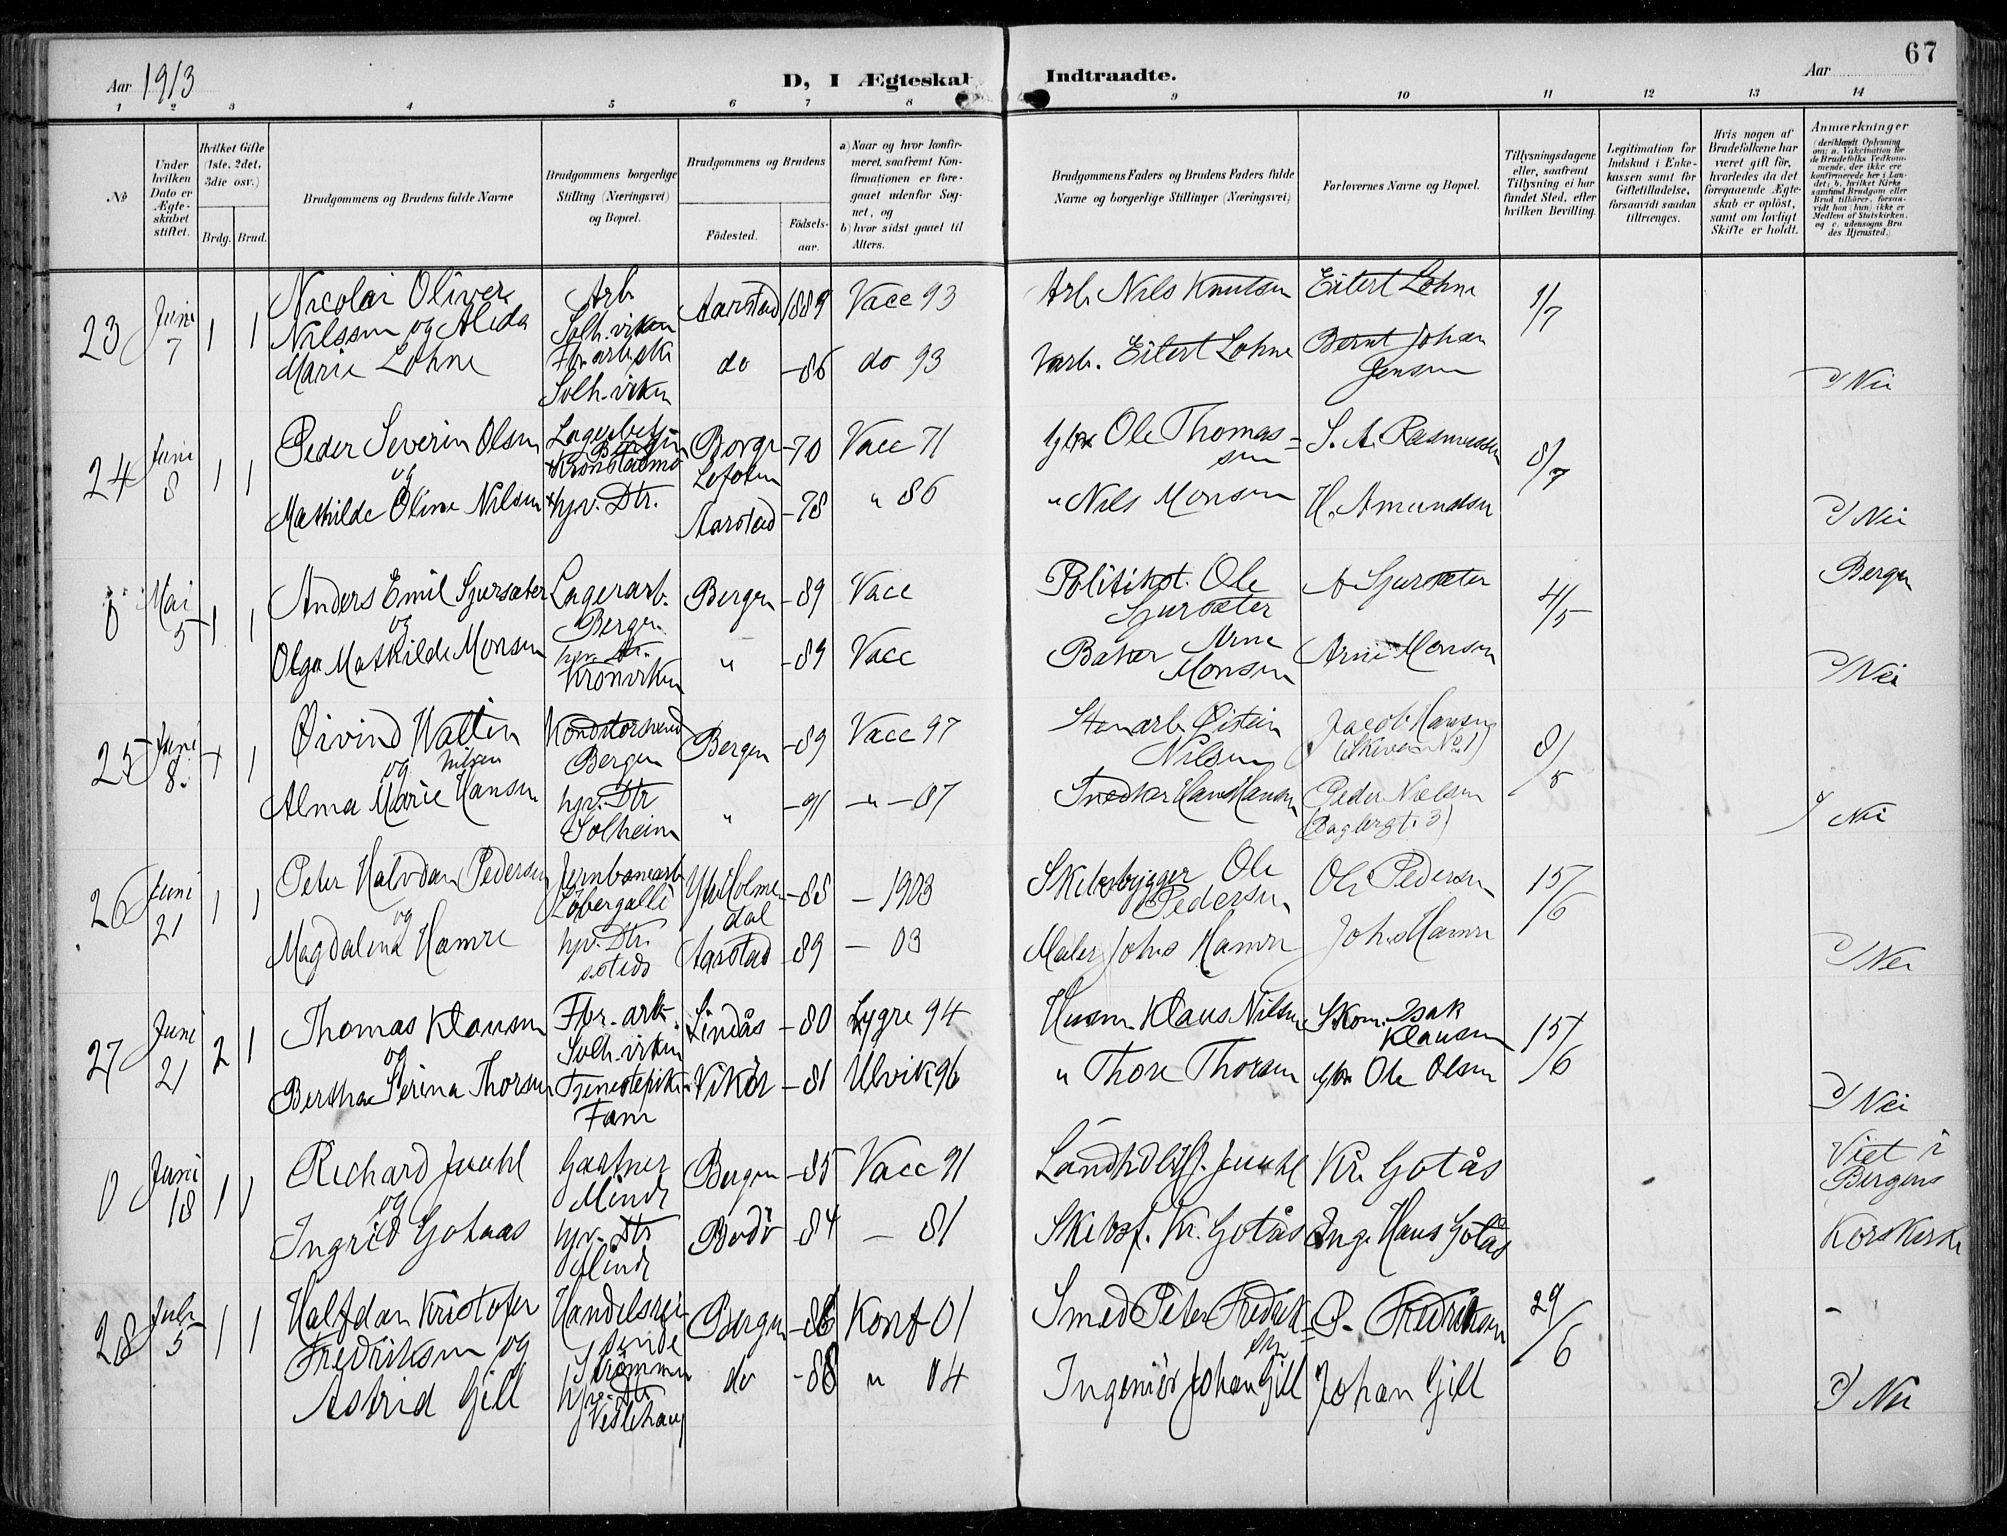 67
Aar 1913
D, I Ægteskab Indtraadte.
Aar
1 2 3 4 5 6 7 8 9 10 11 12 13 14
No
Under hvilken Dato er Ægteskabet stiftet.
Hvilket Gifte (1ste, 2det, 3die osv.)
Brdg. Brud.
Brudgommens og Brudens fulde Navne
Brudgommens borgerlige Stilling (Næringsvei) og Bopæl.
Brudgommens og Brudens
Födested.
Födsels-aar.
a) Naar og hvor konfirmeret, saafremt Konfirmationen er foregaaet udenfor Sognet, og
b) hvor sidst gaaet til Alters.
Brudgommens Faders og Brudens Faders fulde Navne og borgerlige Stillinger (Næringsvei)
Forlovernes Navne og Bopæl.
Tillysningsdagene eller, saafremt Tillysning ei har fundet Sted, efter hvilken Bevilling.
Legitimation for Indskud i Enkekassen samt for Giftetilladelse, forsaavidt saadan tiltrænges.
Hvis nogen af Brudefolkene har været gift för, hvorledes da det foregaaende Ægteskab er oplöst, samt om lovligt Skifte er holdt.
Anmærkninger
(deriblandt Oplysning om: a. Vaksination for de Brudefolks Vedkommende, der ikke ere konfirmerede her i Landet; b. hvilket Kirkesamfund Brudgom eller Brud tilhörer, forsaavidt han (hun) ikke er Medlem af Statskirken. og c. udensogns Brudes Hjemsted.)
23 Juni 7 1 1
Nicolai Oliver Nilssen og Alida Marie Lohne
Arb. Solh.viken
Fbr.arbske Solh.viken
Aarstad 1889 Vacc 93
do -86 do 93
Arb. Nils Knutsen
Varb. Eilert Lohne
Eilert Lohne
Bernt Johan Jensen
1/7
Nei
24 Juni 8 1 1
Peder Severin Olsen
og
Mathilde Oline Nilsen
Kronstadmo
hjv. Dtr.
Lofoten -70 Vacc 71
Aarstad -78 " 86
Ole Thomas=sen
" Nils Monsen
S. A. Rasmussen
H. Amundsen
8/7
Nei
0 Mai 5 1 1
Anders Emil Sjursæter
og
Olga Mathilde Monsen
Lagerarb. Bergen
hjv. Dtr. Kronviken
Bergen -89 Vacc
" -89 Vacc
Politikst. Ole Sjursæter
Baker Arne Monsen
A Sjursæter
Arne Monsen
4/5
Bergen
Nei
25 Juni 8. 1 1
Øivind Wallin Nilsen
og
Alma Marie Hansen
Bergen
hjv. Dtr Solheim
Bergen -89 Vacc 97
" -91 -"- 07
Stenarb. Øistein Nilsen
Snedker Hans Hansen
Jacob Hansen
(Skiveren No 1)
Peder Nielsen
8/5
Nei
26 Juni 21 1 1
Peter Halvdan Pedersen
og
Magdalena Hamre
Jernbanearb
hjv. Dtr. isteds
Ytre Holmedal -88 - 1903
Aarstad -89 - 03
Skibsbygger Ole Pedersen
Maler Johs Hamre
Ole Pedersen
Johs Hamre
15/6
Nei
27 Juni 21 2 1
Thomas Klausen
og
Bertha Serina Thorsen
Fbr.-arb. Solh.viken
Tjenestepike Fane
Lindås -80 Lygre 94
Vikør -81 Ulvik 96
Husm. Klaus Nilsen
" Thore Thorsen
Skom. Isak Klausen
Ole Olsen
15/6
Nei
0 Juni 18 1 1
Richard Juuhl
og
Ingrid Gotaas
Gartner Minde
hjv. Dtr Minde
Bergen -85 Vacc 91
Bodö -84 - 81
Juuhl
Skibsf. Kr. Gotås
Kr. Gotås
Inge Haus Gotås
Viet i Bergens Korskirke
28 Juli 5 1 1
Halfdan Kristofer Fredriksen og Astrid Gill
Handelsreisende Strömmen
hjv. Dtr Veslehaug
Bergen -86 Konf 01
do -88 " 04
Smed Peter Fredrik=sen
Ingeniör Johan Gill
P. Fredriksen
Johan Gill
29/6
-
Nei